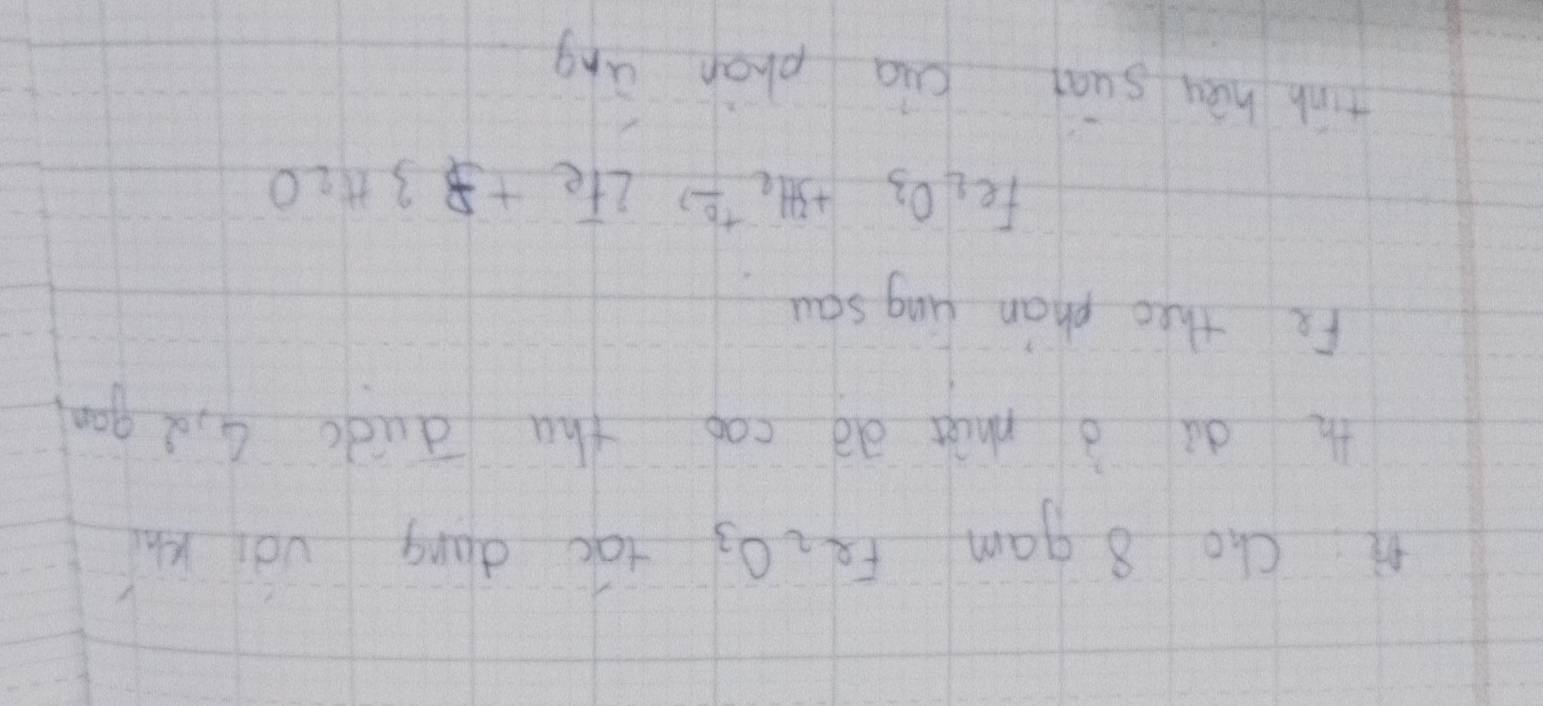 Cho 8 gam Fe2O3 tác dụng với khí
H2 dư ở nhiệt độ cao thu được 4,2 gam
Fe theo phản ứng sau
Fe2O3 +3H2 to→ 2Fe + 3H2O
tính hiệu suất của phản ứng